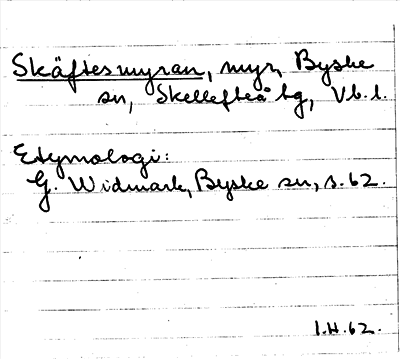 Skäftesmyran, myr, Byske
sn, Skellefteå tg, Vb. l.
Etymologi:
G. Widmark, Byske sn, s. 62.
I.H.62.